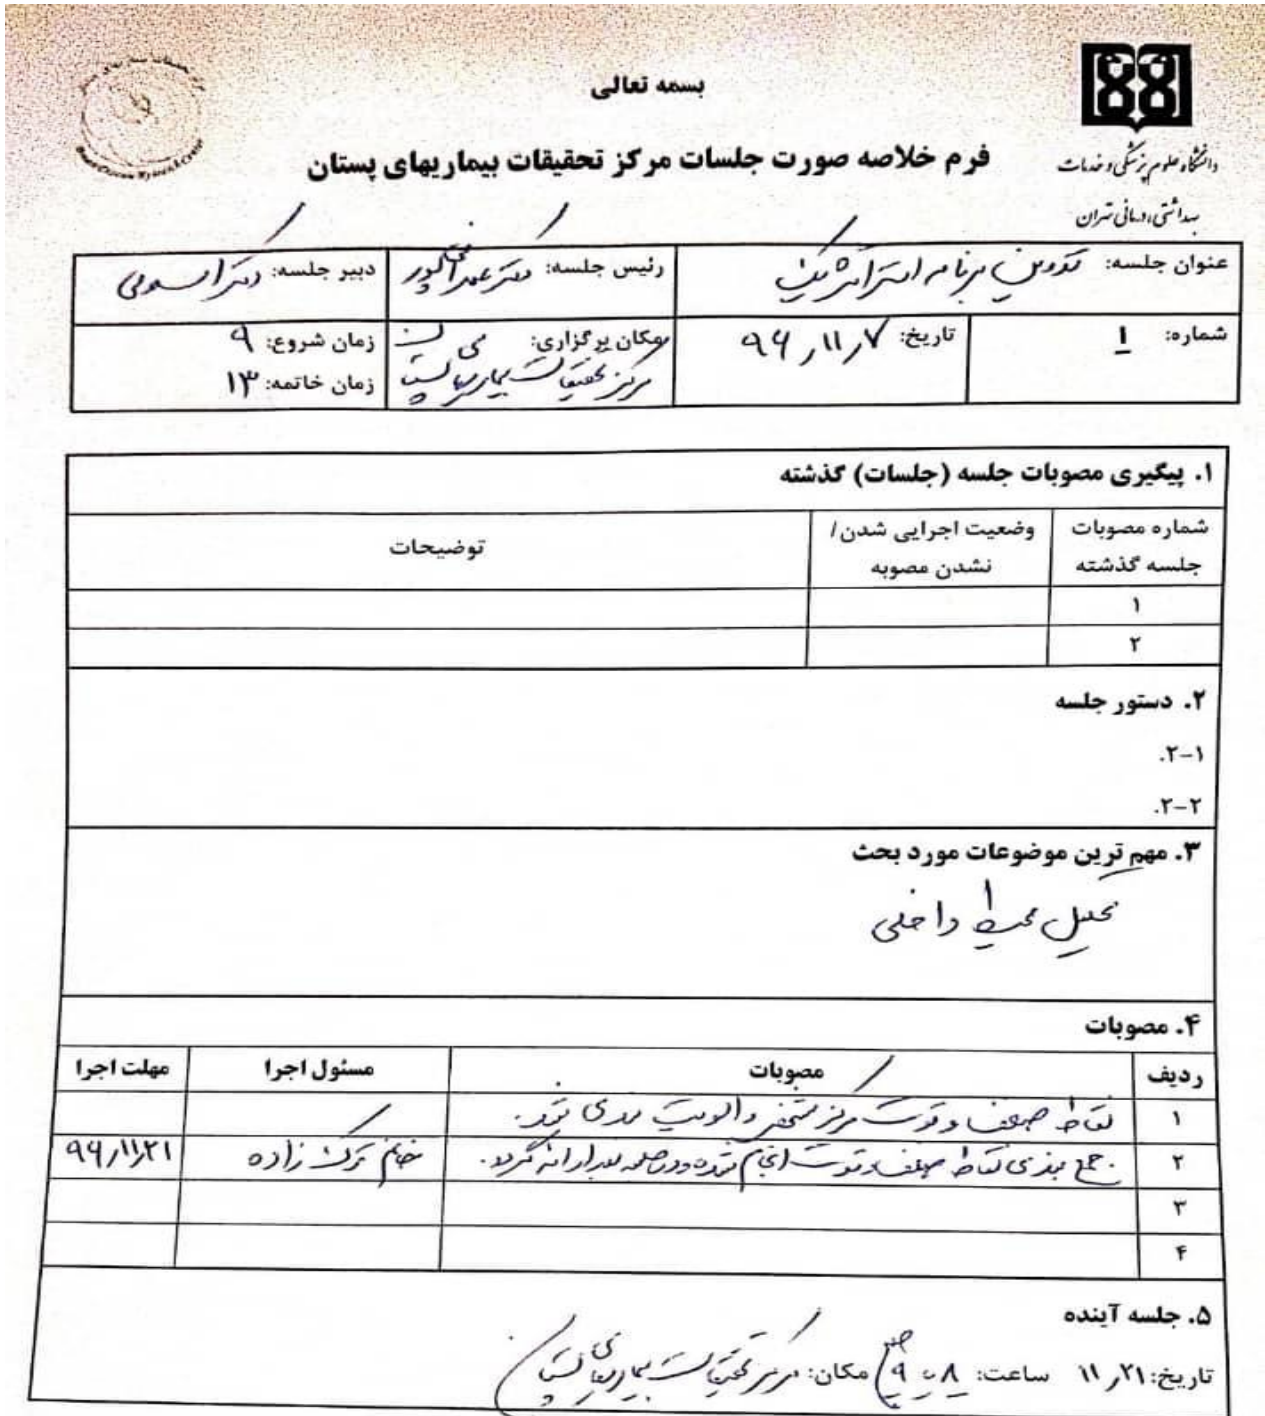 بسمه تعالی
فرم خلاصه صورت جلسات مرکز تحقیقات بیماریهای پستان
دانشگاه علوم پزشکی و خدمات
بهداشتی درمانی تهران
عنوان جلسه: تدوین برنامه استراتژیک
رئیس جلسه: دکتر
دبیر جلسه: دکتر
شماره: ۱
تاریخ: ۹۶٫۱۱٫۷
مکان برگزاری: مرکز تحقیقات بیماریهای پستان
زمان شروع: ۹
زمان خاتمه: ۱۳
۱. پیگیری مصوبات جلسه (جلسات) گذشته
شماره مصوبات جلسه گذشته
وضعیت اجرایی شدن/ نشدن مصوبه
توضیحات
۱
۲
۲. دستور جلسه
۲-۱.
۲-۲.
۳. مهم ترین موضوعات مورد بحث
تحلیل محیط داخلی
۴. مصوبات
ردیف مصوبات مسئول اجرا مهلت اجرا
۱ نقاط ضعف و قوت مرکز مشخص و الویت بندی شد.
۲ جمع بندی نقاط ضعف و قوت انجام شده و در جلسه بعد ارائه گردد. خانم ترک زاده ۹۶٫۱۱٫۲۱
۳
۴
۵. جلسه آینده
تاریخ: ۱۱٫۲۱ ساعت: ۸ تا ۹ صبح مکان: مرکز تحقیقات بیماریهای پستان